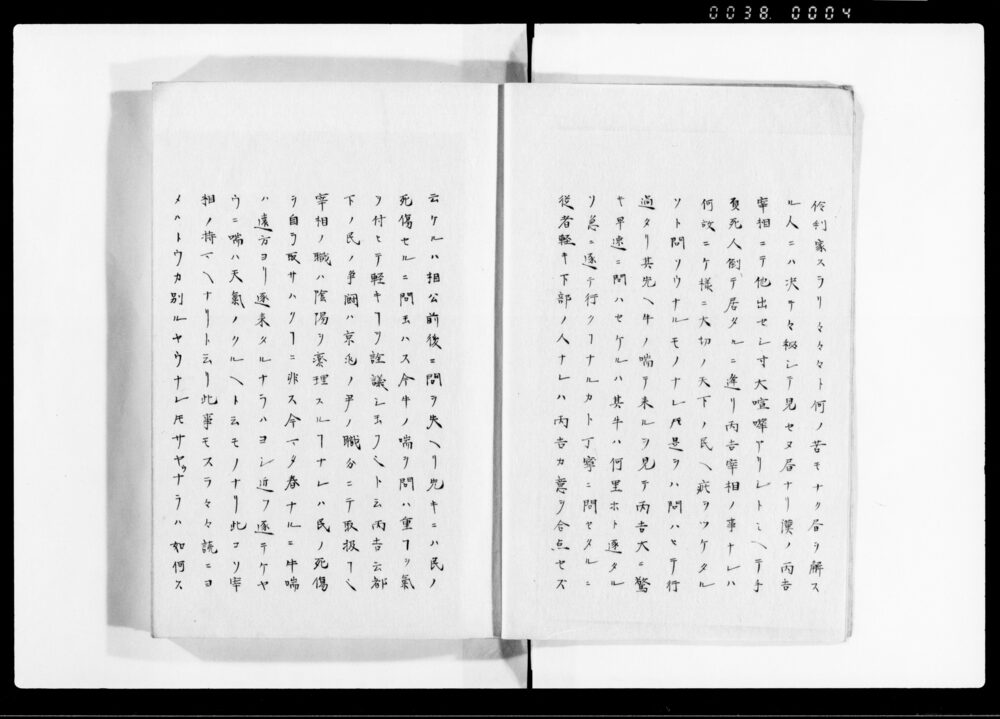 0038.0004
伶利家スラリ々々々ト何ノ苦モナク局ヲ解ス
ル人ニハ決サ々秘シテ見セヌ局ナリ漢ノ丙吉
宰相ニテ他出セシ寸大喧嘩アリシトミヘテ手
負死人倒テ居タルニ逢リ丙吉宰相ノ事ナレハ
何故ニケ様ニ大切ノ天下ノ民ヘ疵ヲツケタル
ソト問ソウナルモノナレ𪜈是ヲハ問ハセテ行
過タリ其先ヘ牛ノ喘テ来ルヲ見テ丙吉大ニ驚
キ早速ニ問ハセケルハ其牛ハ何里ホト逐タル
ソ急ニ逐テ行クヿナルカト丁寧ニ問セタルニ
従者軽キ下部ノ人ナレハ丙吉カ意ヲ合点セズ
云ケルハ相公前後ニ問ヲ失ヘリ先キニハ民ノ
死傷セルニ問玉ハス今牛ノ喘ヲ問ハ重ヿヲ氣
ヲ付ヒテ軽キヿヲ詮議シ玉フヘト云丙吉云都
下ノ民ノ爭鬪ハ京兆ノ尹ノ職分ニテ取扱ヿヘ
宰相ノ職ハ陰陽ヲ燮理スルヿナレハ民ノ死傷
ヲ自ラ取サハクヿニ非ス今マタ春ナルニ牛喘
ハ遠方ヨリ逐来タルナラハヨシ近フ逐テケヤ
ウニ喘ハ天氣ノクルヘトムモノナリ此コソ宰
相ノ持マヘナリト云リ此事モスラ々々読ニヨ
メハトウカ別ルヤウナレ𪜈サヤウナラハ如何ス